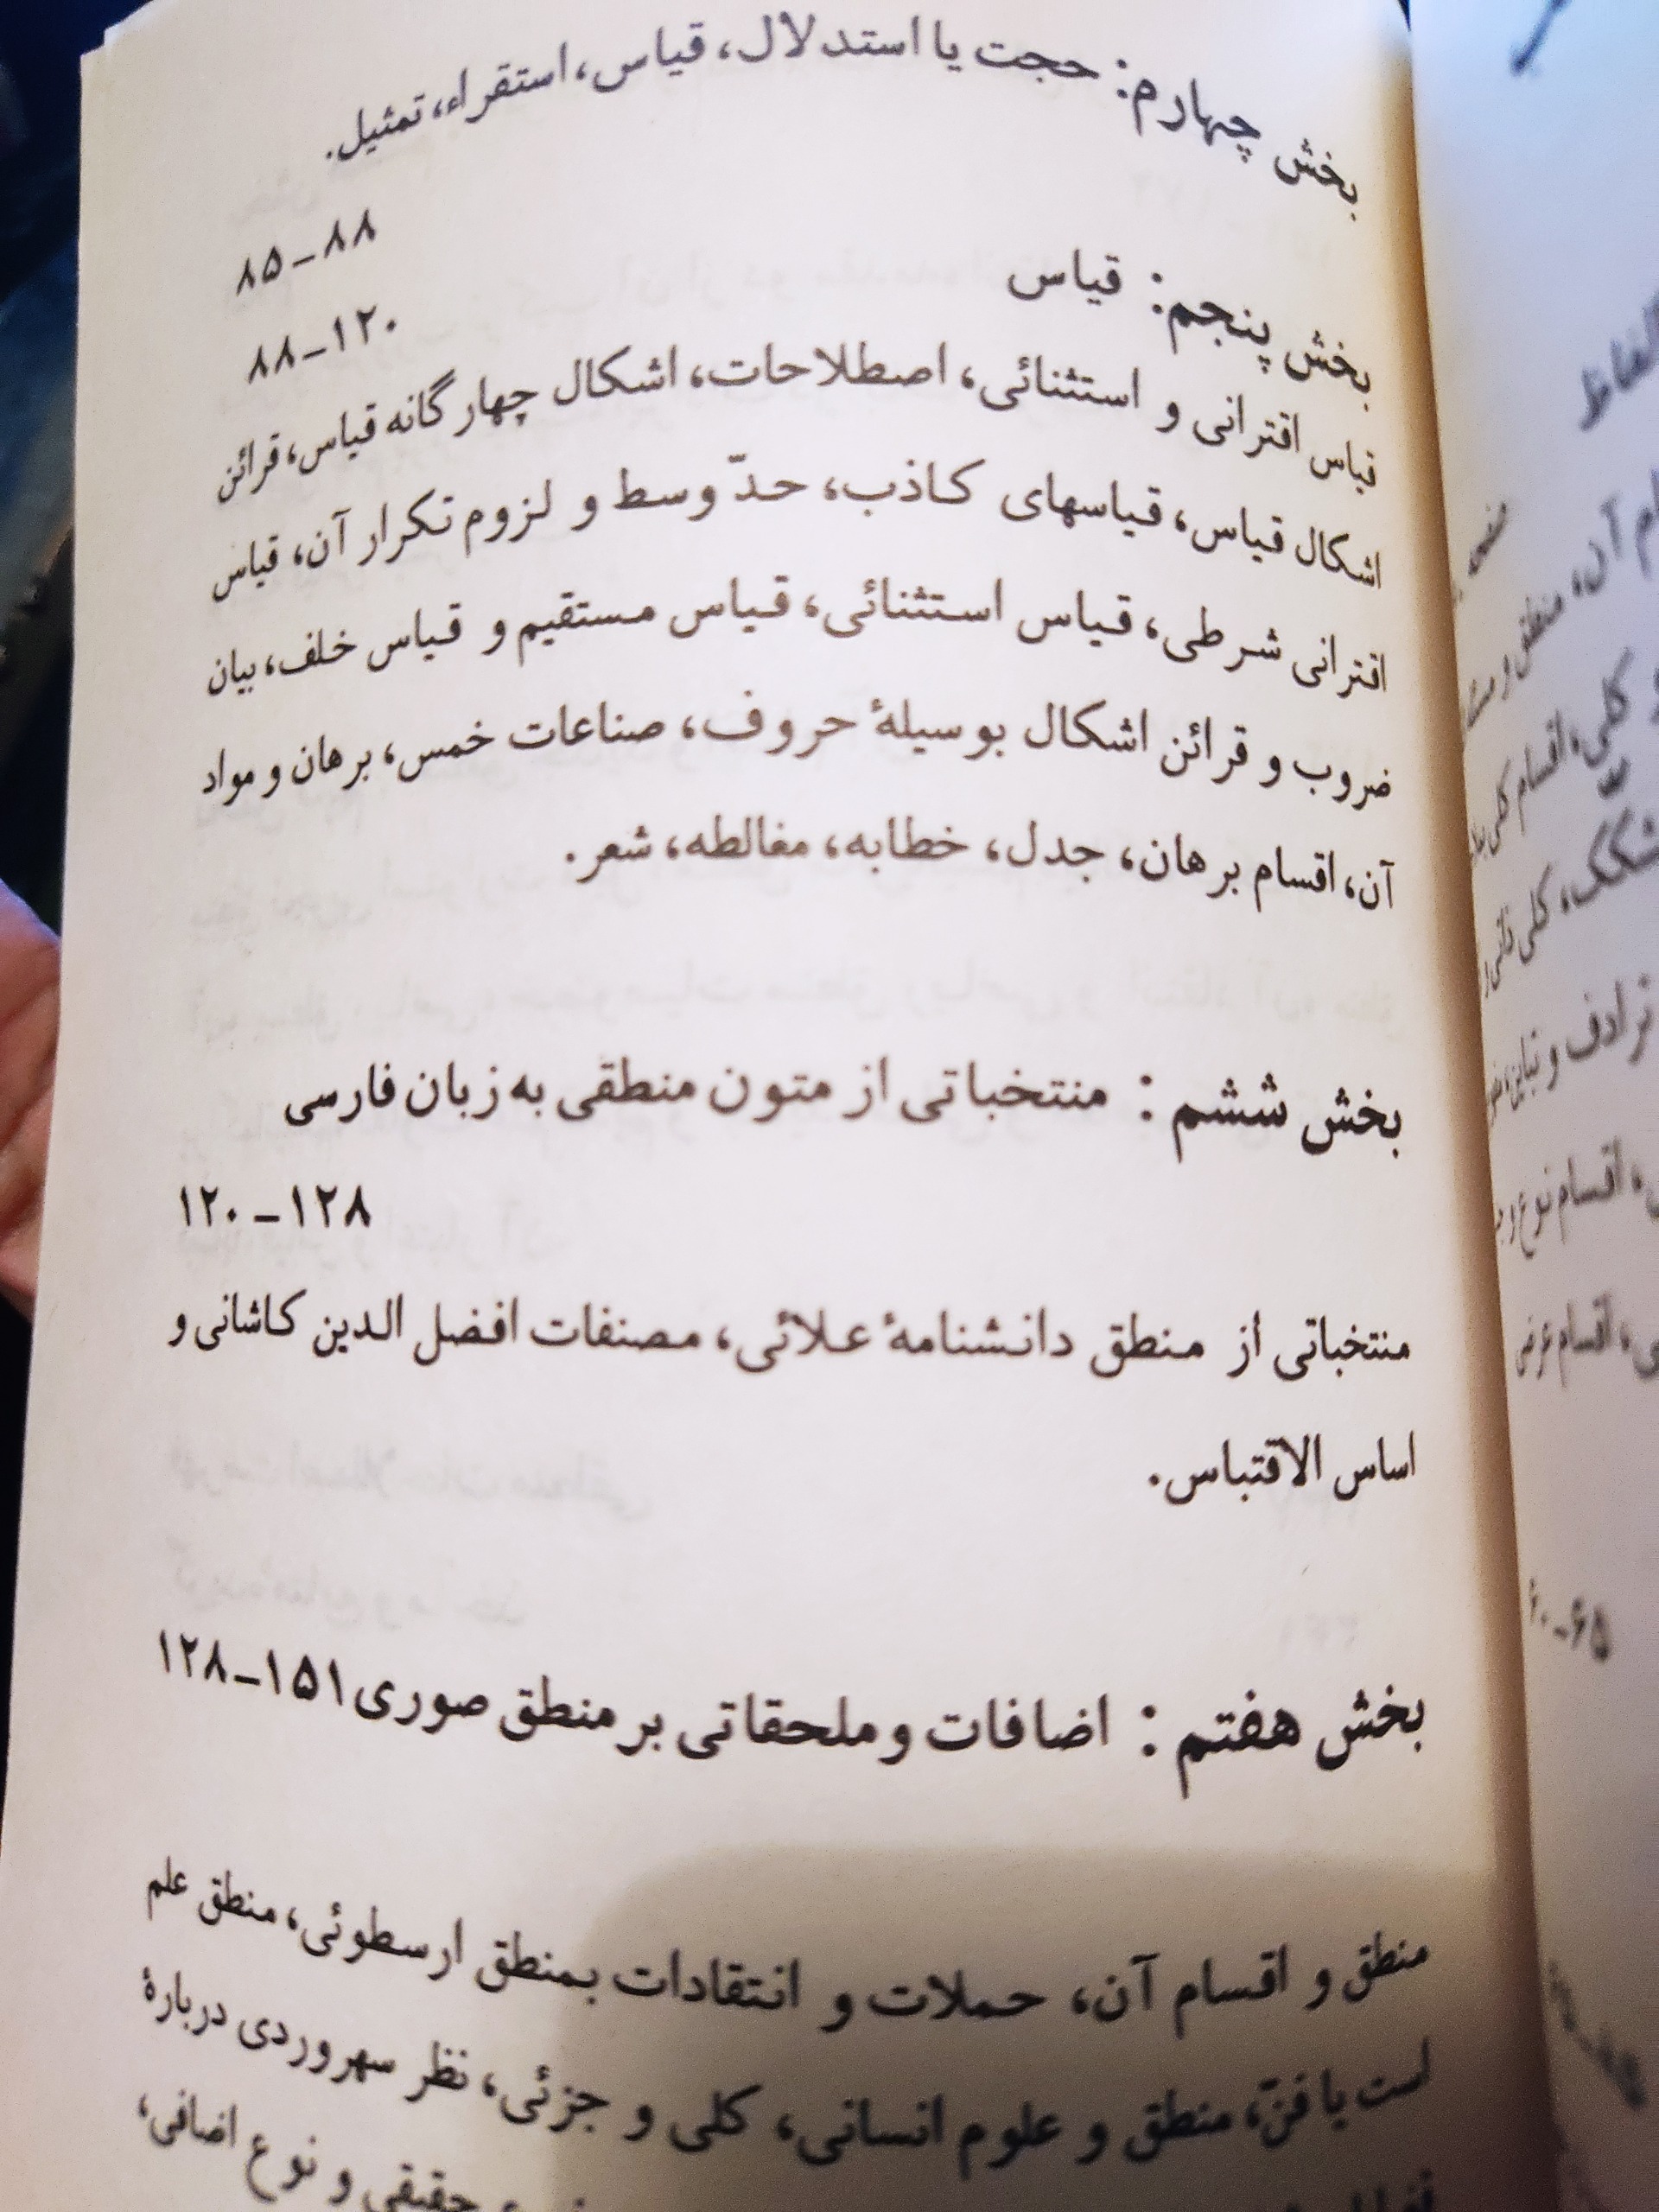 بخش چهارم: حجت یا استدلال، قیاس، استقراء، تمثیل.
۸۵-۸۸
بخش پنجم: قیاس
۸۸-۱۲۰
قیاس اقترانی و استثنائی، اصطلاحات، اشکال چهار گانه قیاس، قرائن
اشکال قیاس، قیاسهای کاذب، حدّ وسط و لزوم تکرار آن، قیاس
اقترانی شرطی، قیاس استثنائی، قیاس مستقیم و قیاس خلف، بیان
ضروب و قرائن اشکال بوسیلهٔ حروف، صناعات خمس، برهان و مواد
آن، اقسام برهان، جدل، خطابه، مغالطه، شعر.
بخش ششم : منتخباتی از متون منطقی به زبان فارسی
۱۲۰-۱۲۸
منتخباتی از منطق دانشنامهٔ علائی، مصنفات افضل الدین کاشانی و
اساس الاقتباس.
بخش هفتم : اضافات و ملحقاتی بر منطق صوری ۱۲۸-۱۵۱
منطق و اقسام آن، حملات و انتقادات بمنطق ارسطوئی، منطق علم
است یا فنّ، منطق و علوم انسانی، کلی و جزئی، نظر سهروردی دربارهٔ
حقیقی و نوع اضافی،
الفاظ
صفحه
آن، منطق و
کلی، اقسام کلی
کلی ذاتی
ترادف و تباین،
اقسام نوع و
اقسام عرض
۶۰-۶۵